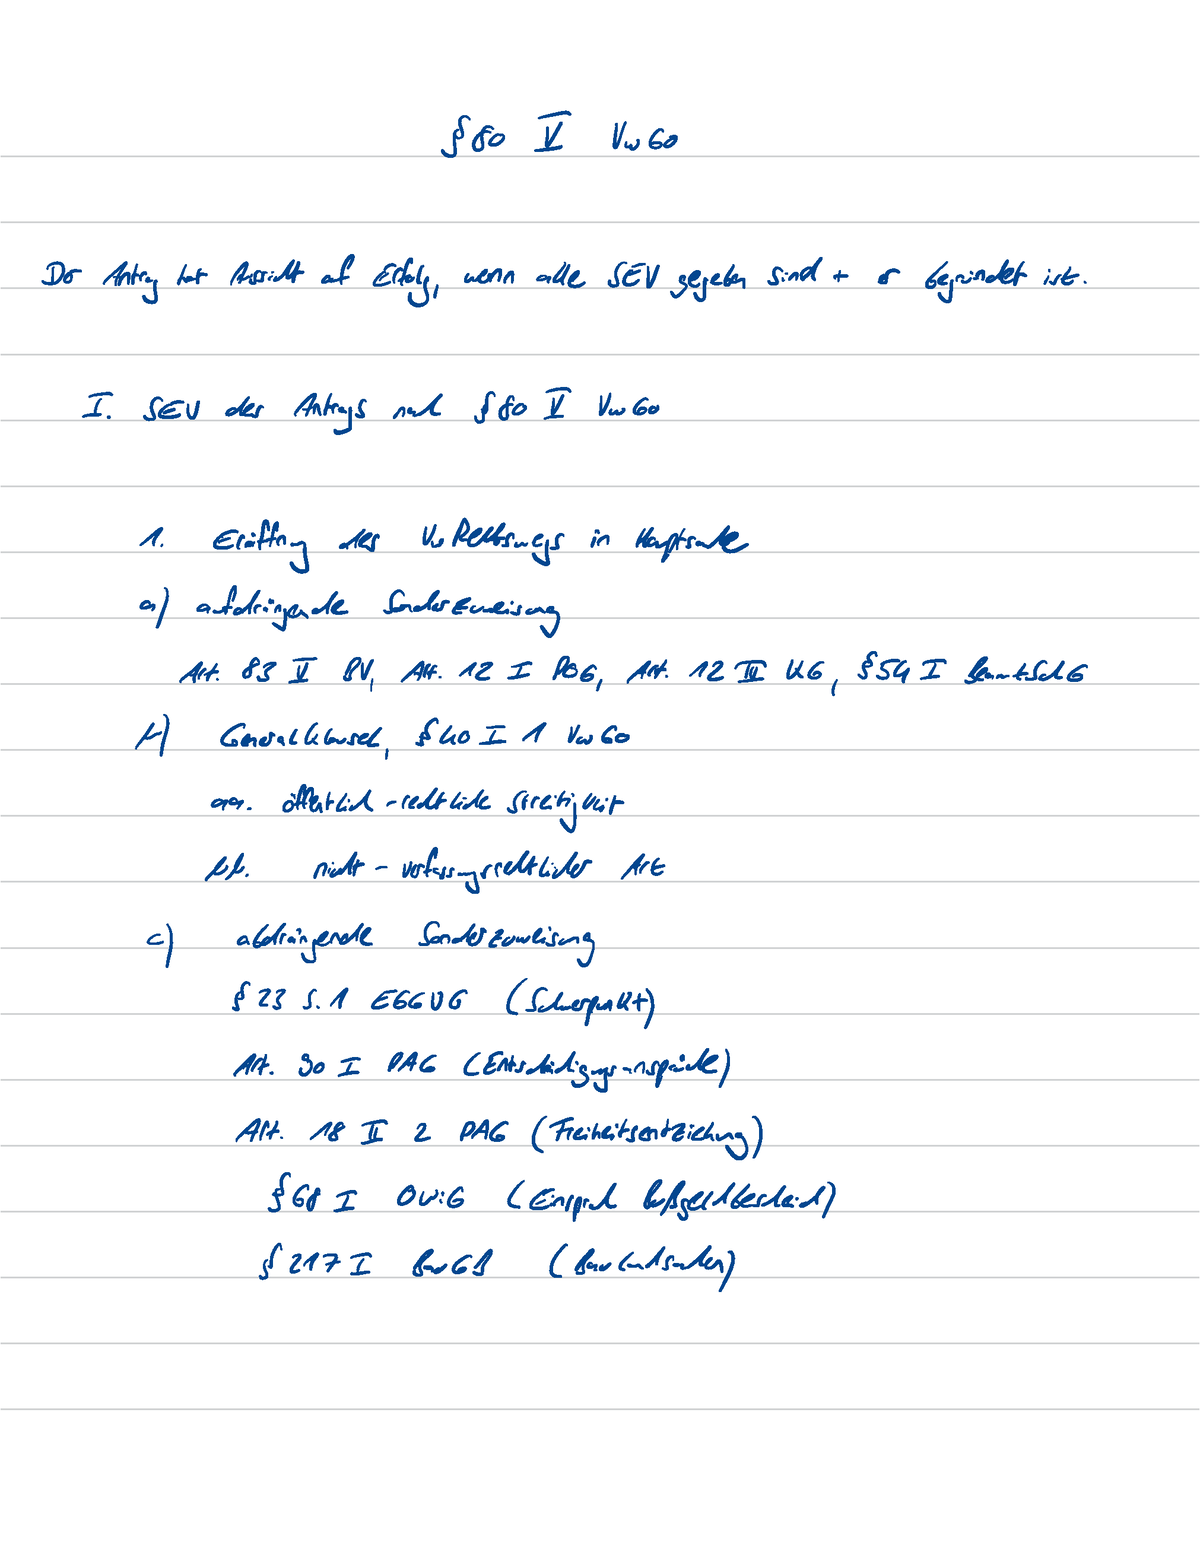 § 80 V VwGO
Der Antrag hat Aussicht auf Erfolg, wenn alle SEV gegeben sind + er begründet ist.
I. SEV des Antrags nach § 80 V VwGO
1. Eröffnung des VwRechtswegs in Hauptsache
a) aufdrängende Sonderzuweisung
Art. 83 V BV, Art. 12 I POG, Art. 12 III KG, § 54 I BeamtStG
b) Generalklausel, § 40 I 1 VwGO
aa. öffentlich-rechtliche Streitigkeit
bb. nicht-verfassungsrechtlicher Art
c) abdrängende Sonderzuweisung
§ 23 S. 1 EGGVG (Schwerpunkt)
Art. 90 I PAG (Entschädigungsansprüche)
Art. 18 II 2 PAG (Freiheitsentziehung)
§ 68 I OWiG (Einspruch Bußgeldbescheid)
§ 217 I BauGB (Baulandsachen)